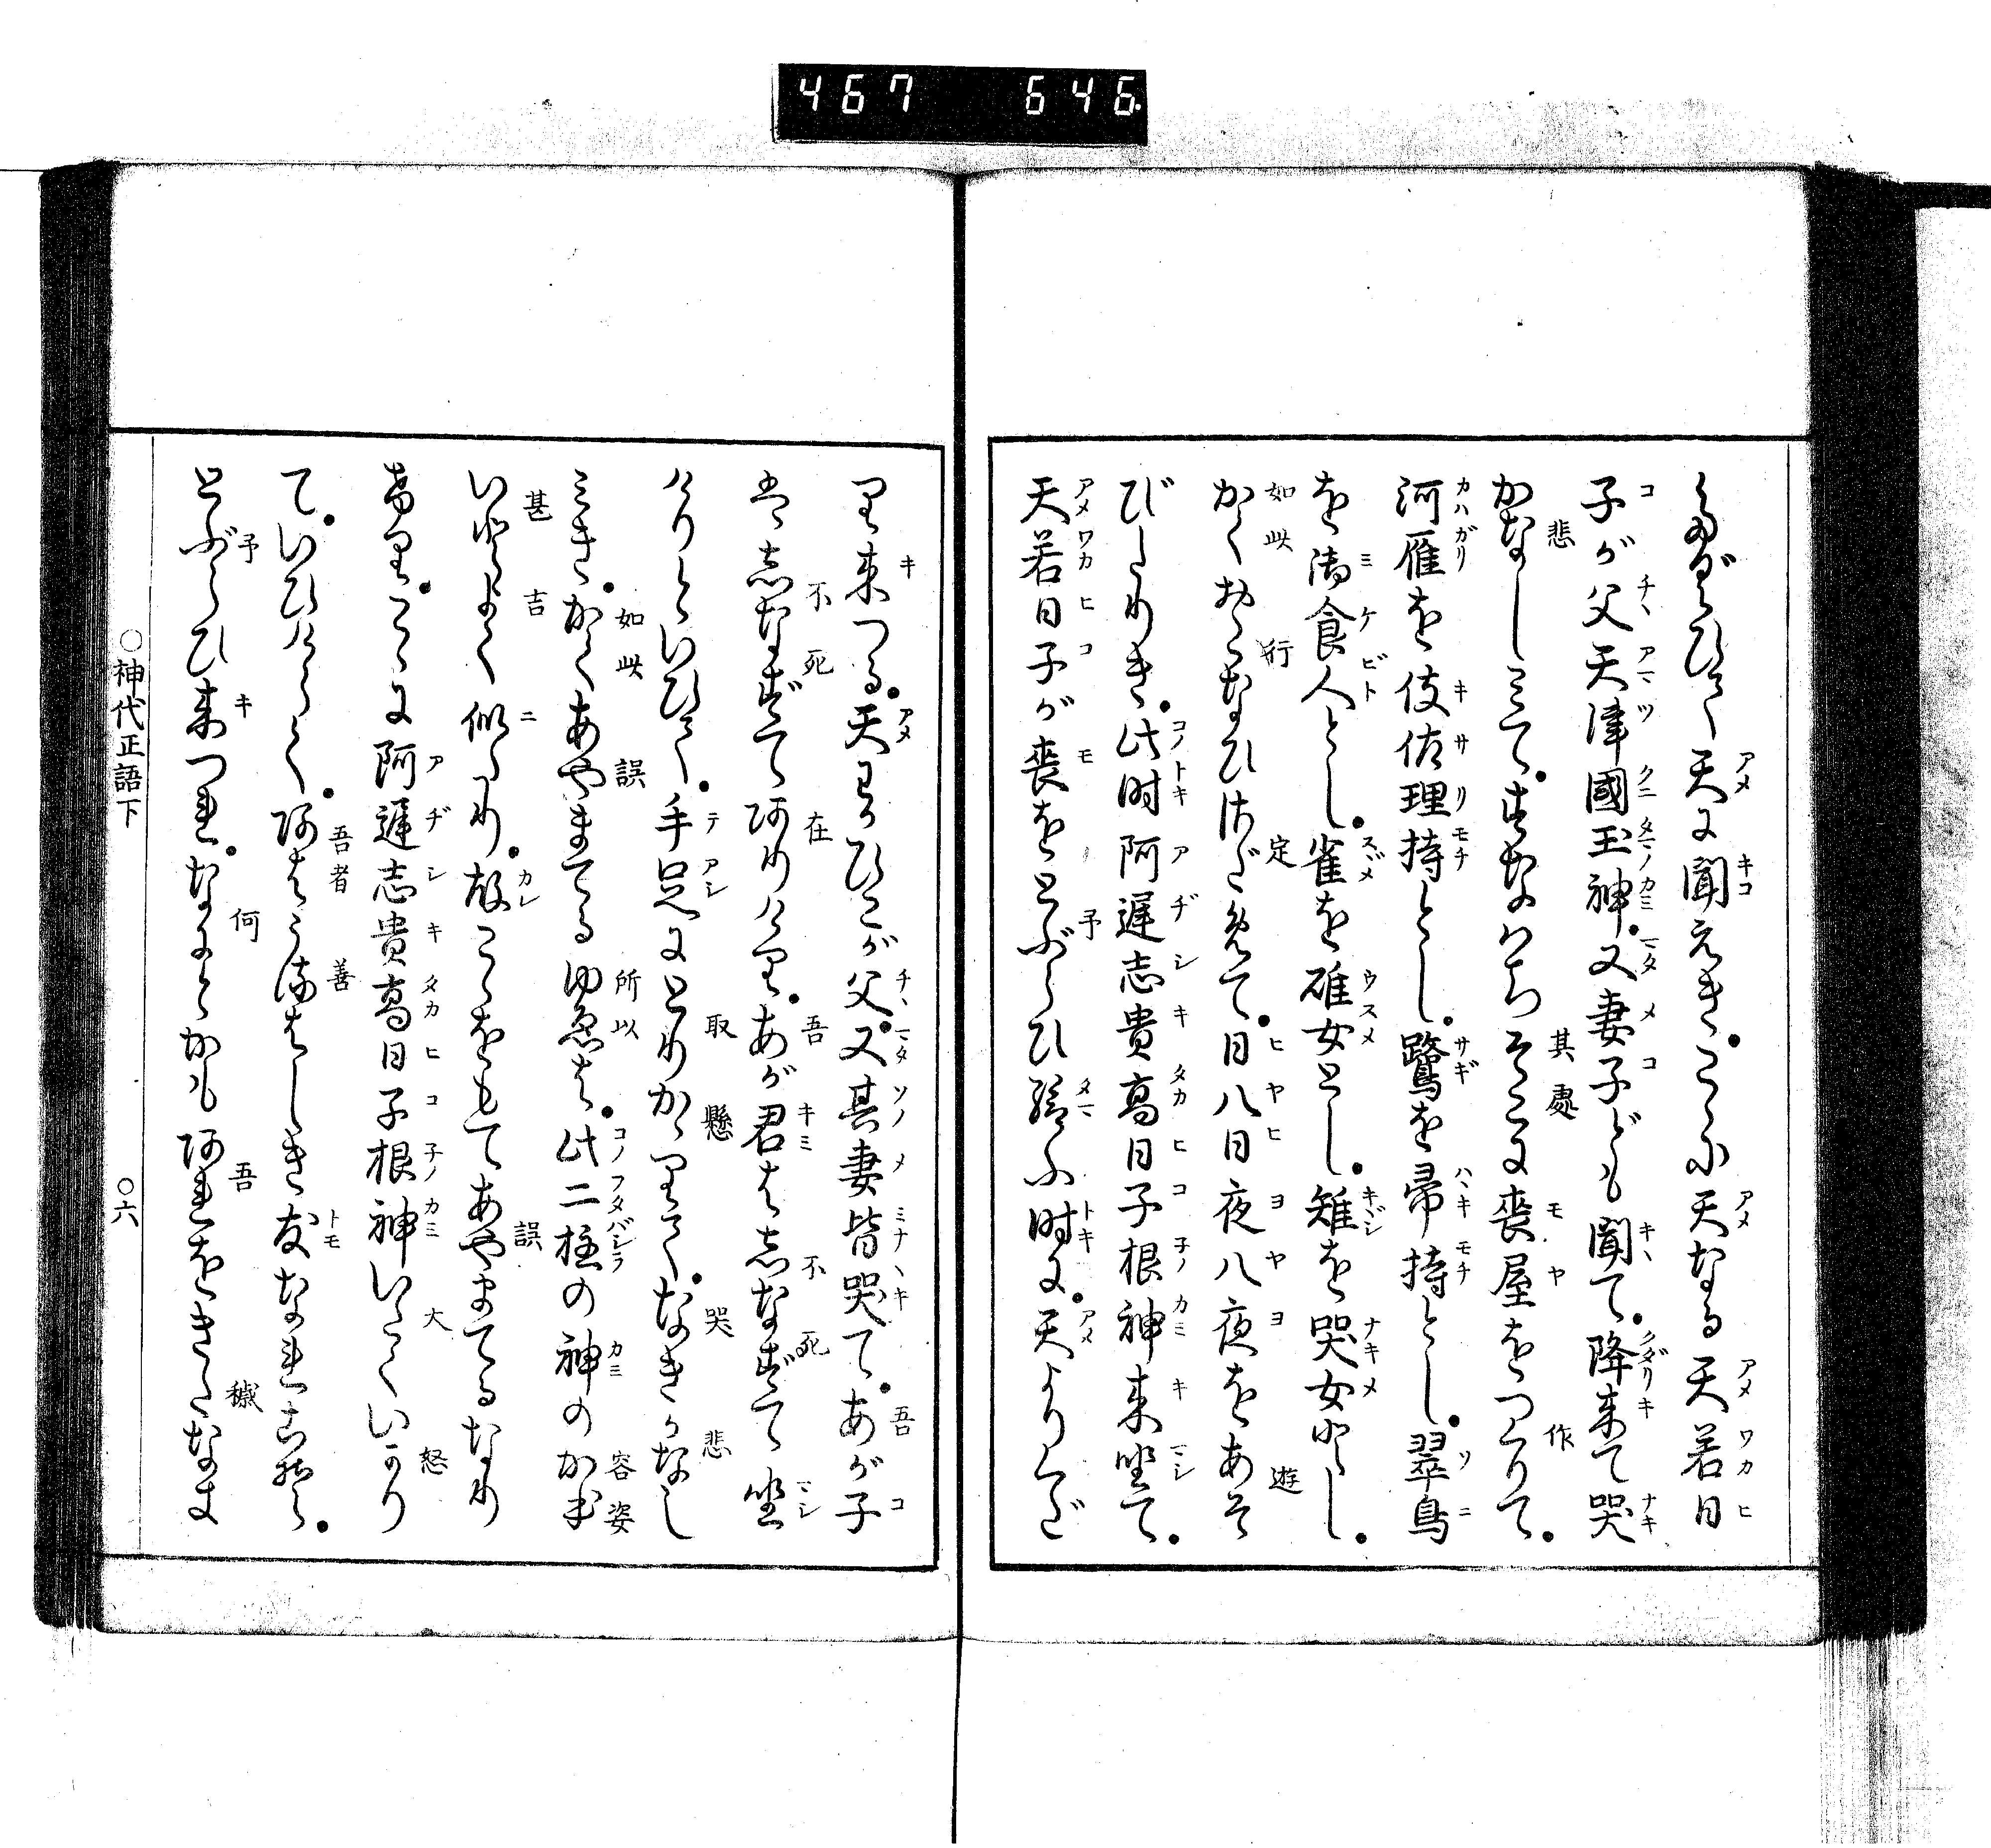 467 646
くたぐひて天に聞えき。こゝに天なる天若日
子が父天津國玉神。又妻子ども聞て。降來て哭
かなしみて。すなはちそこに喪屋をつくりて。
河雁を伎佐理持とし。鷺を帚持とし。翠鳥
を御食人とし。雀を碓女とし。雉を哭女とし。
かくおこなひさだめて。日八日夜八夜をあそ
びたりき。此時阿遲志貴高日子根神來坐て。
天若日子が喪をとぶらひ給ふ時に。天よりくだ
り來つる。天わかひこが父。又其妻皆哭て。あが子
は志なずて阿りけり。あが君は志なずて坐
けりといひて。手足にとりかゝりて。なきかなし
みき。かくあやまてるゆゑは。此二柱の神のかほ
いとよく似たり。故こゝをもてあやまてるなり
けり。こゝに阿遲志貴高日子根神いたくいかり
て。いひけらく。阿はうるはしき友なれこそ。
とぶらひ來つれ。なにとかも阿れをきたなき
○神代正語下 ○六